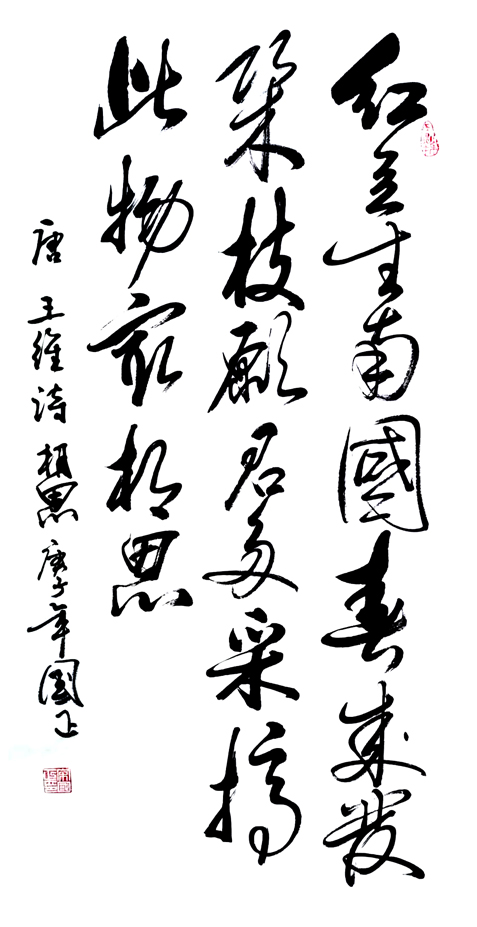 红豆生南國春来發
幾枝願君多采摘
此物最相思
唐 王維詩 相思 庚子年 國正